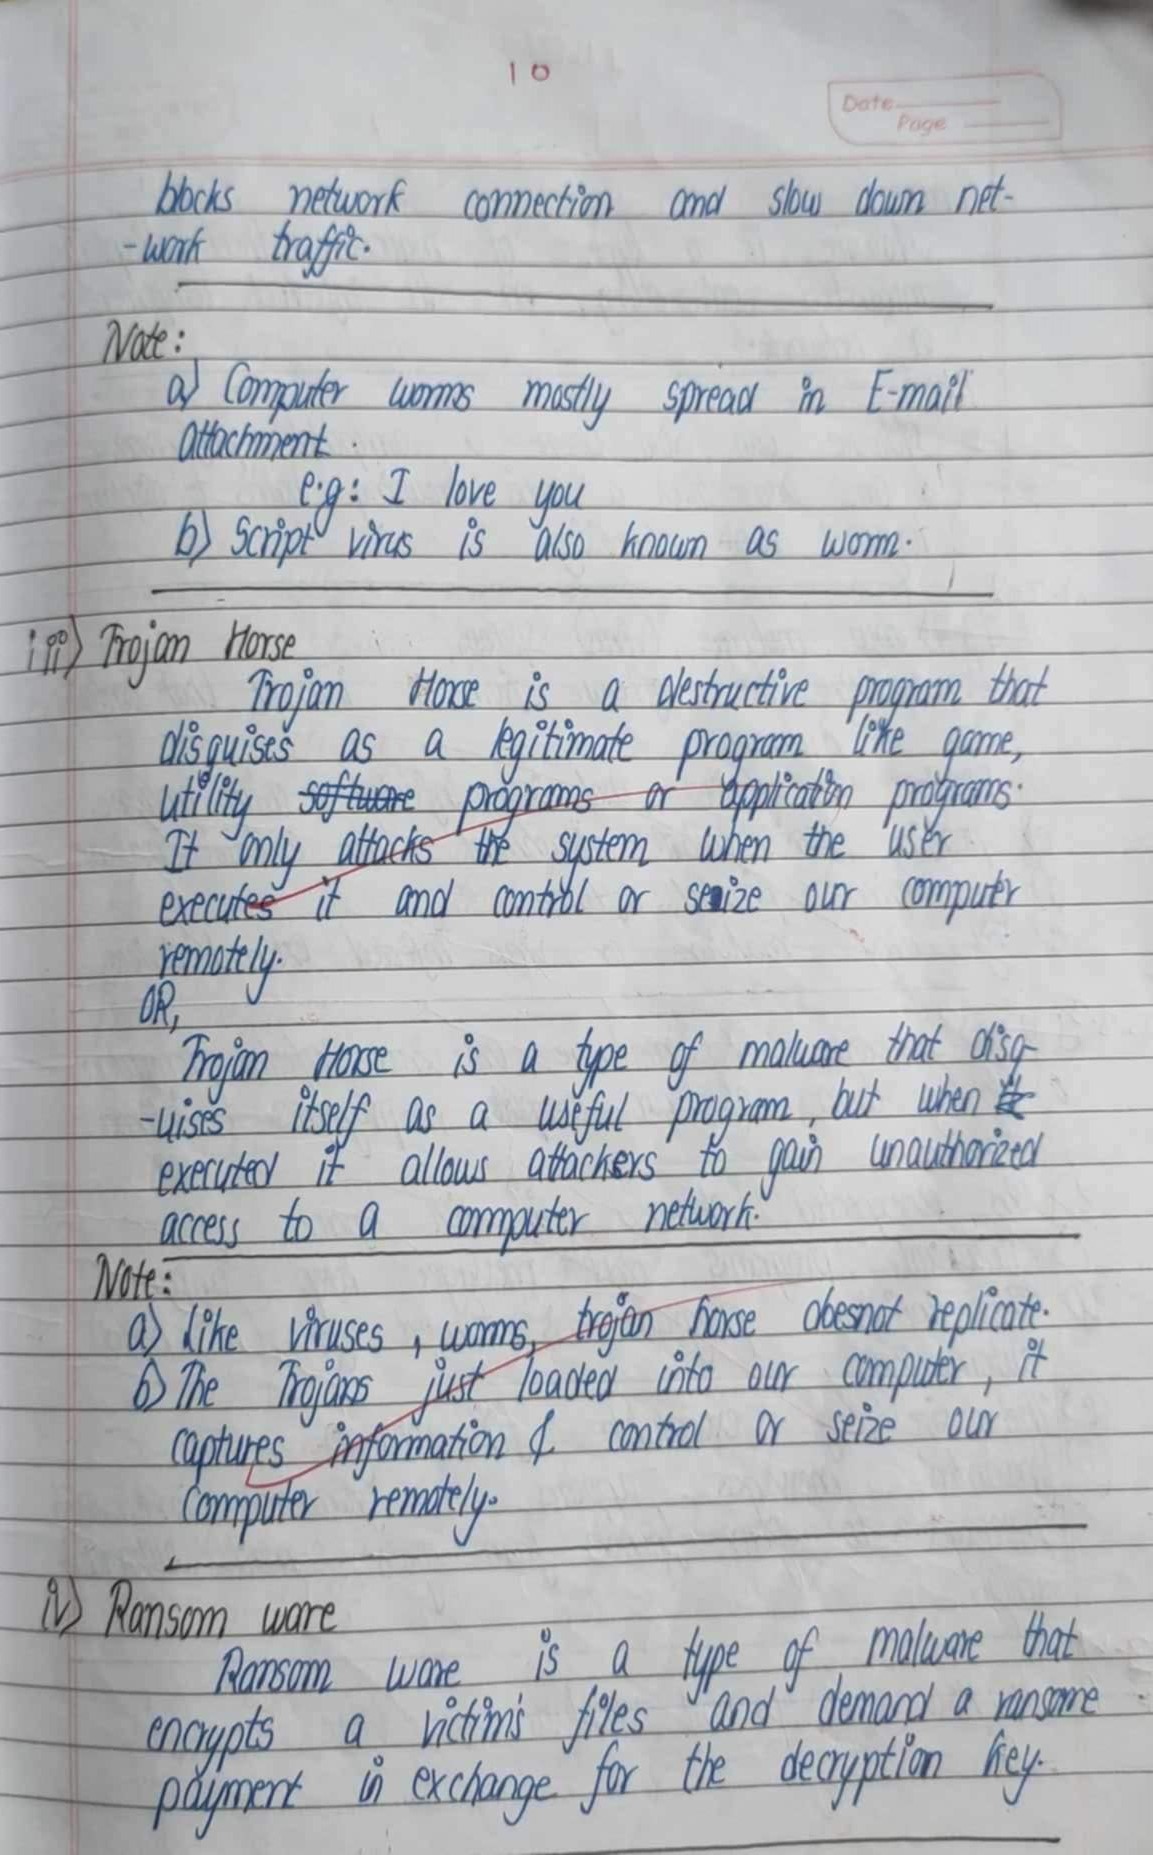 10
Date
Page
blocks network connection and slow down net-
-work traffic.
Note:
a) Computer worms mostly spread in E-mail
attachment.
e.g: I love you
b) Script virus is also known as worm.
iii) Trojan Horse
Trojan Horse is a destructive program that
disguises as a legitimate program like game,
utility software programs or application programs.
It only attacks the system when the user
executes it and control or seize our computer
remotely.
OR,
Trojan Horse is a type of malware that disg-
-uises itself as a useful program, but when it
executed it allows attackers to gain unauthorized
access to a computer network.
Note:
a) Like viruses, worms, trojan horse doesnot replicate.
b) The Trojans just loaded into our computer, it
captures information & control or seize our
computer remotely.
iv) Ransom ware
Ransom ware is a type of malware that
encrypts a victim's files and demand a ransome
payment in exchange for the decryption key.